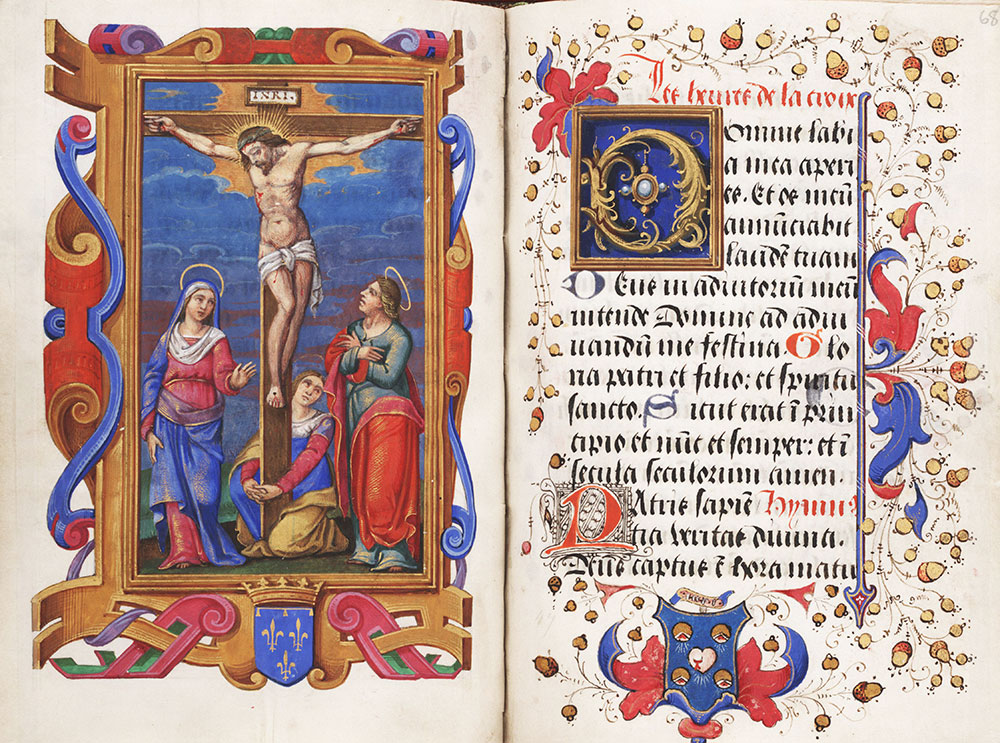 INRI.
68
Les heures de la croix
Domine labi
a mea aperi
es. Et os meū
annūciabit
laudē tuam
Deus in adiutoriū meū
intende Domine ad adiu
uandū me festina. Glo
ria patri et filio: et spiritu
sancto. Sicut erat ī prin
cipio et nūc et semper: et ī
secula seculorum amen.
Patris sapien Hymnus
tia veritas diuina.
Deus captus ē hora matu